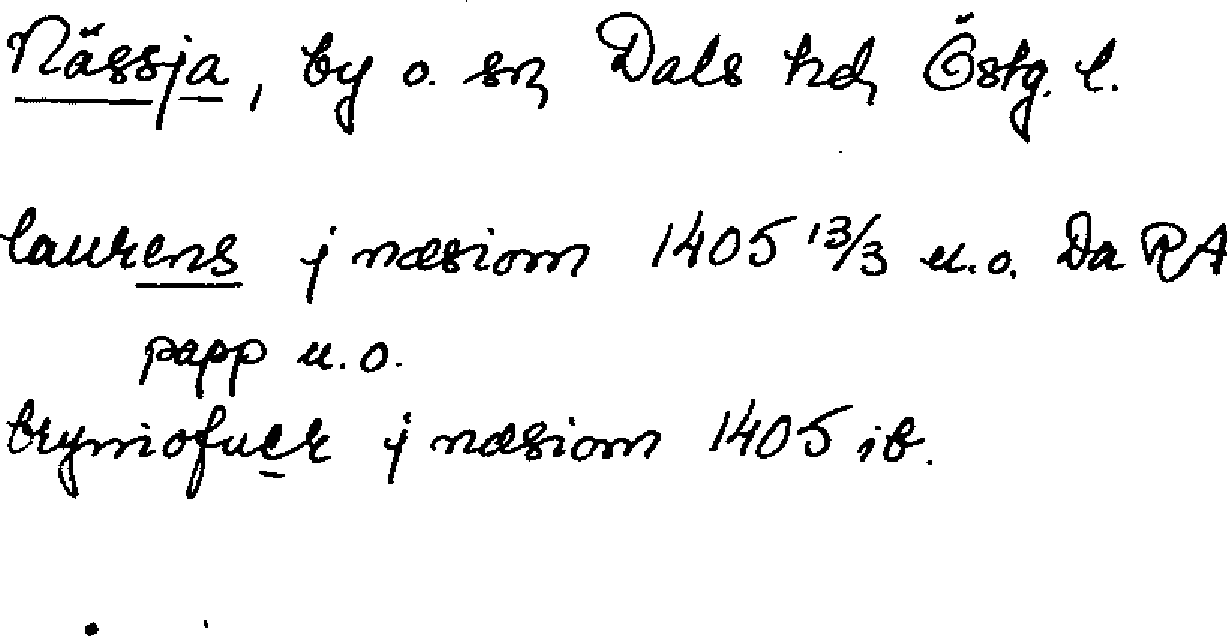 Nässja, by o. sn, Dals hd, Östg. l.
laurens j næsiom 1405 13/3 u.o. Da RA
papp u.o.
bryniofuer j næsiom 1405 ib.